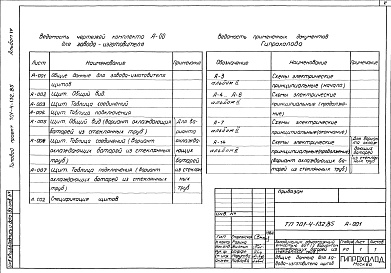 Ведомость чертежей комплекта А-00
для завода-изготовителя
Лист
Наименование
Примечание
А-001
Общие данные для завода-изготовителя
щитов
А-002
Щит. Общий вид.
А-003
Щит. Таблица соединений
А-004
Щит. Таблица подключения
А-005
Щит. Общий вид (вариант охлаждающих
батарей из стеклянных труб)
Для ва-
рианта
А-006
Щит. Таблица соединений (Вариант
охлаждающих батарей из стеклянных
труб)
охлажда-
ющих
батарей
А-007
Щит. Таблица подключения (Вариант
охлаждающих батарей из стеклянных
труб)
из стеклян-
ных
труб
Спецификация щитов
Ведомость примененных документов
Гипрохолода
Обозначение
Наименование
Примечание
А-3
альбом
Схемы электрические
принципиальные (начало)
А-4... А-6
альбом
Схемы электрические
принципиальные (продолже-
ние)
А-7
альбом
Схемы электрические
принципиальные (окончание)
А-14
альбом
Схемы электрические
(вариант охлаждающих ба-
тарей из стеклянных труб)
Привязан
Инв №
ТП 701-4-132.85
А-001
Стадия
Лист
Листов
1
1
Общие данные для за-
вода-изготовителя щитов
ГИПРОХОЛОД
Москва
Типовой проект 701-4-132.85
Альбом